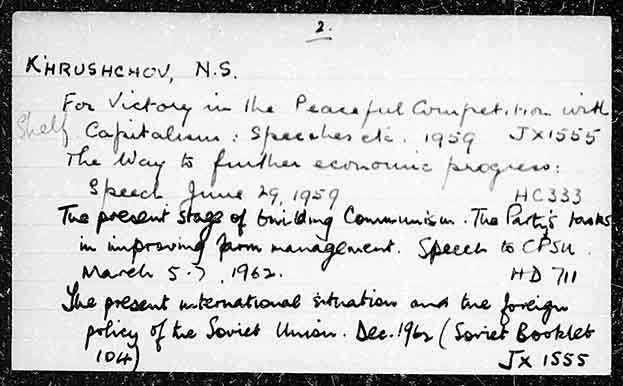 2.
KHRUSHCHOV, N.S.
For Victory in the Peaceful Competition with
Shelf Capitalism: Speeches etc. 1959 JX1555
The Way to further economic progress:
Speech June 29, 1959 HC333
The present stage of building Communism. The Party's tasks
in improving farm management. Speech to CPSU.
March 5-7, 1962. HD 711
The present international situation and the foreign
policy of the Soviet Union. Dec. 1962 (Soviet Booklet
104) JX 1555